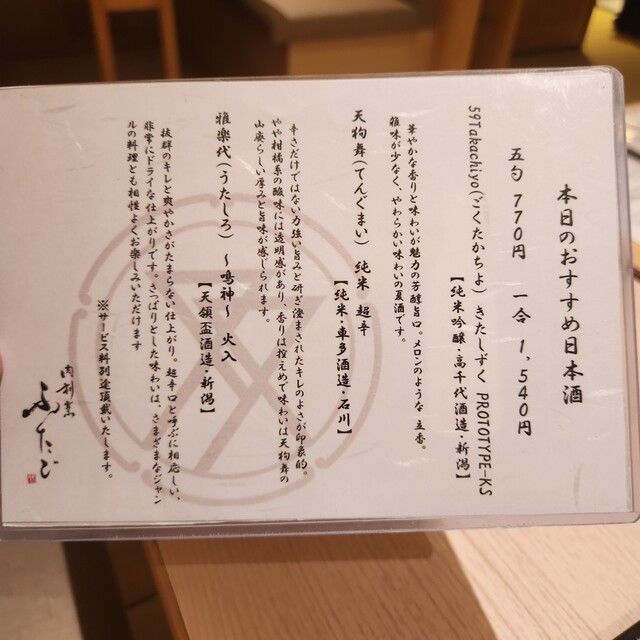 本日のおすすめ日本酒
五勺 770円 一合 1,540円
59Takachiyo(ごくたかちよ) きたしずく PROTOTYPE-KS
【純米吟醸・高千代酒造・新潟】
華やかな香りと味わいが魅力の芳醇旨口。メロンのような立香。
雑味が少なく、やわらかい味わいの夏酒です。
天狗舞(てんぐまい) 純米 超辛
【純米・車多酒造・石川】
辛さだけではない力強い旨みと研ぎ澄まされたキレのよさが印象的。
やや柑橘系の酸味には透明感があり、香りは控えめで味わいは天狗舞の
山廃らしい厚みと旨味が感じられます。
雅楽代(うたしろ) ～鳴神～ 火入
【天領盃酒造・新潟】
抜群のキレと爽やかさがたまらない仕上がり。超辛口と呼ぶに相応しい、
非常にドライな仕上がりです。さっぱりとした味わいは、さまざまなジャン
ルの料理とも相性よくお楽しみいただけます
※サービス料別途頂戴いたします。
肉割烹
ふたご